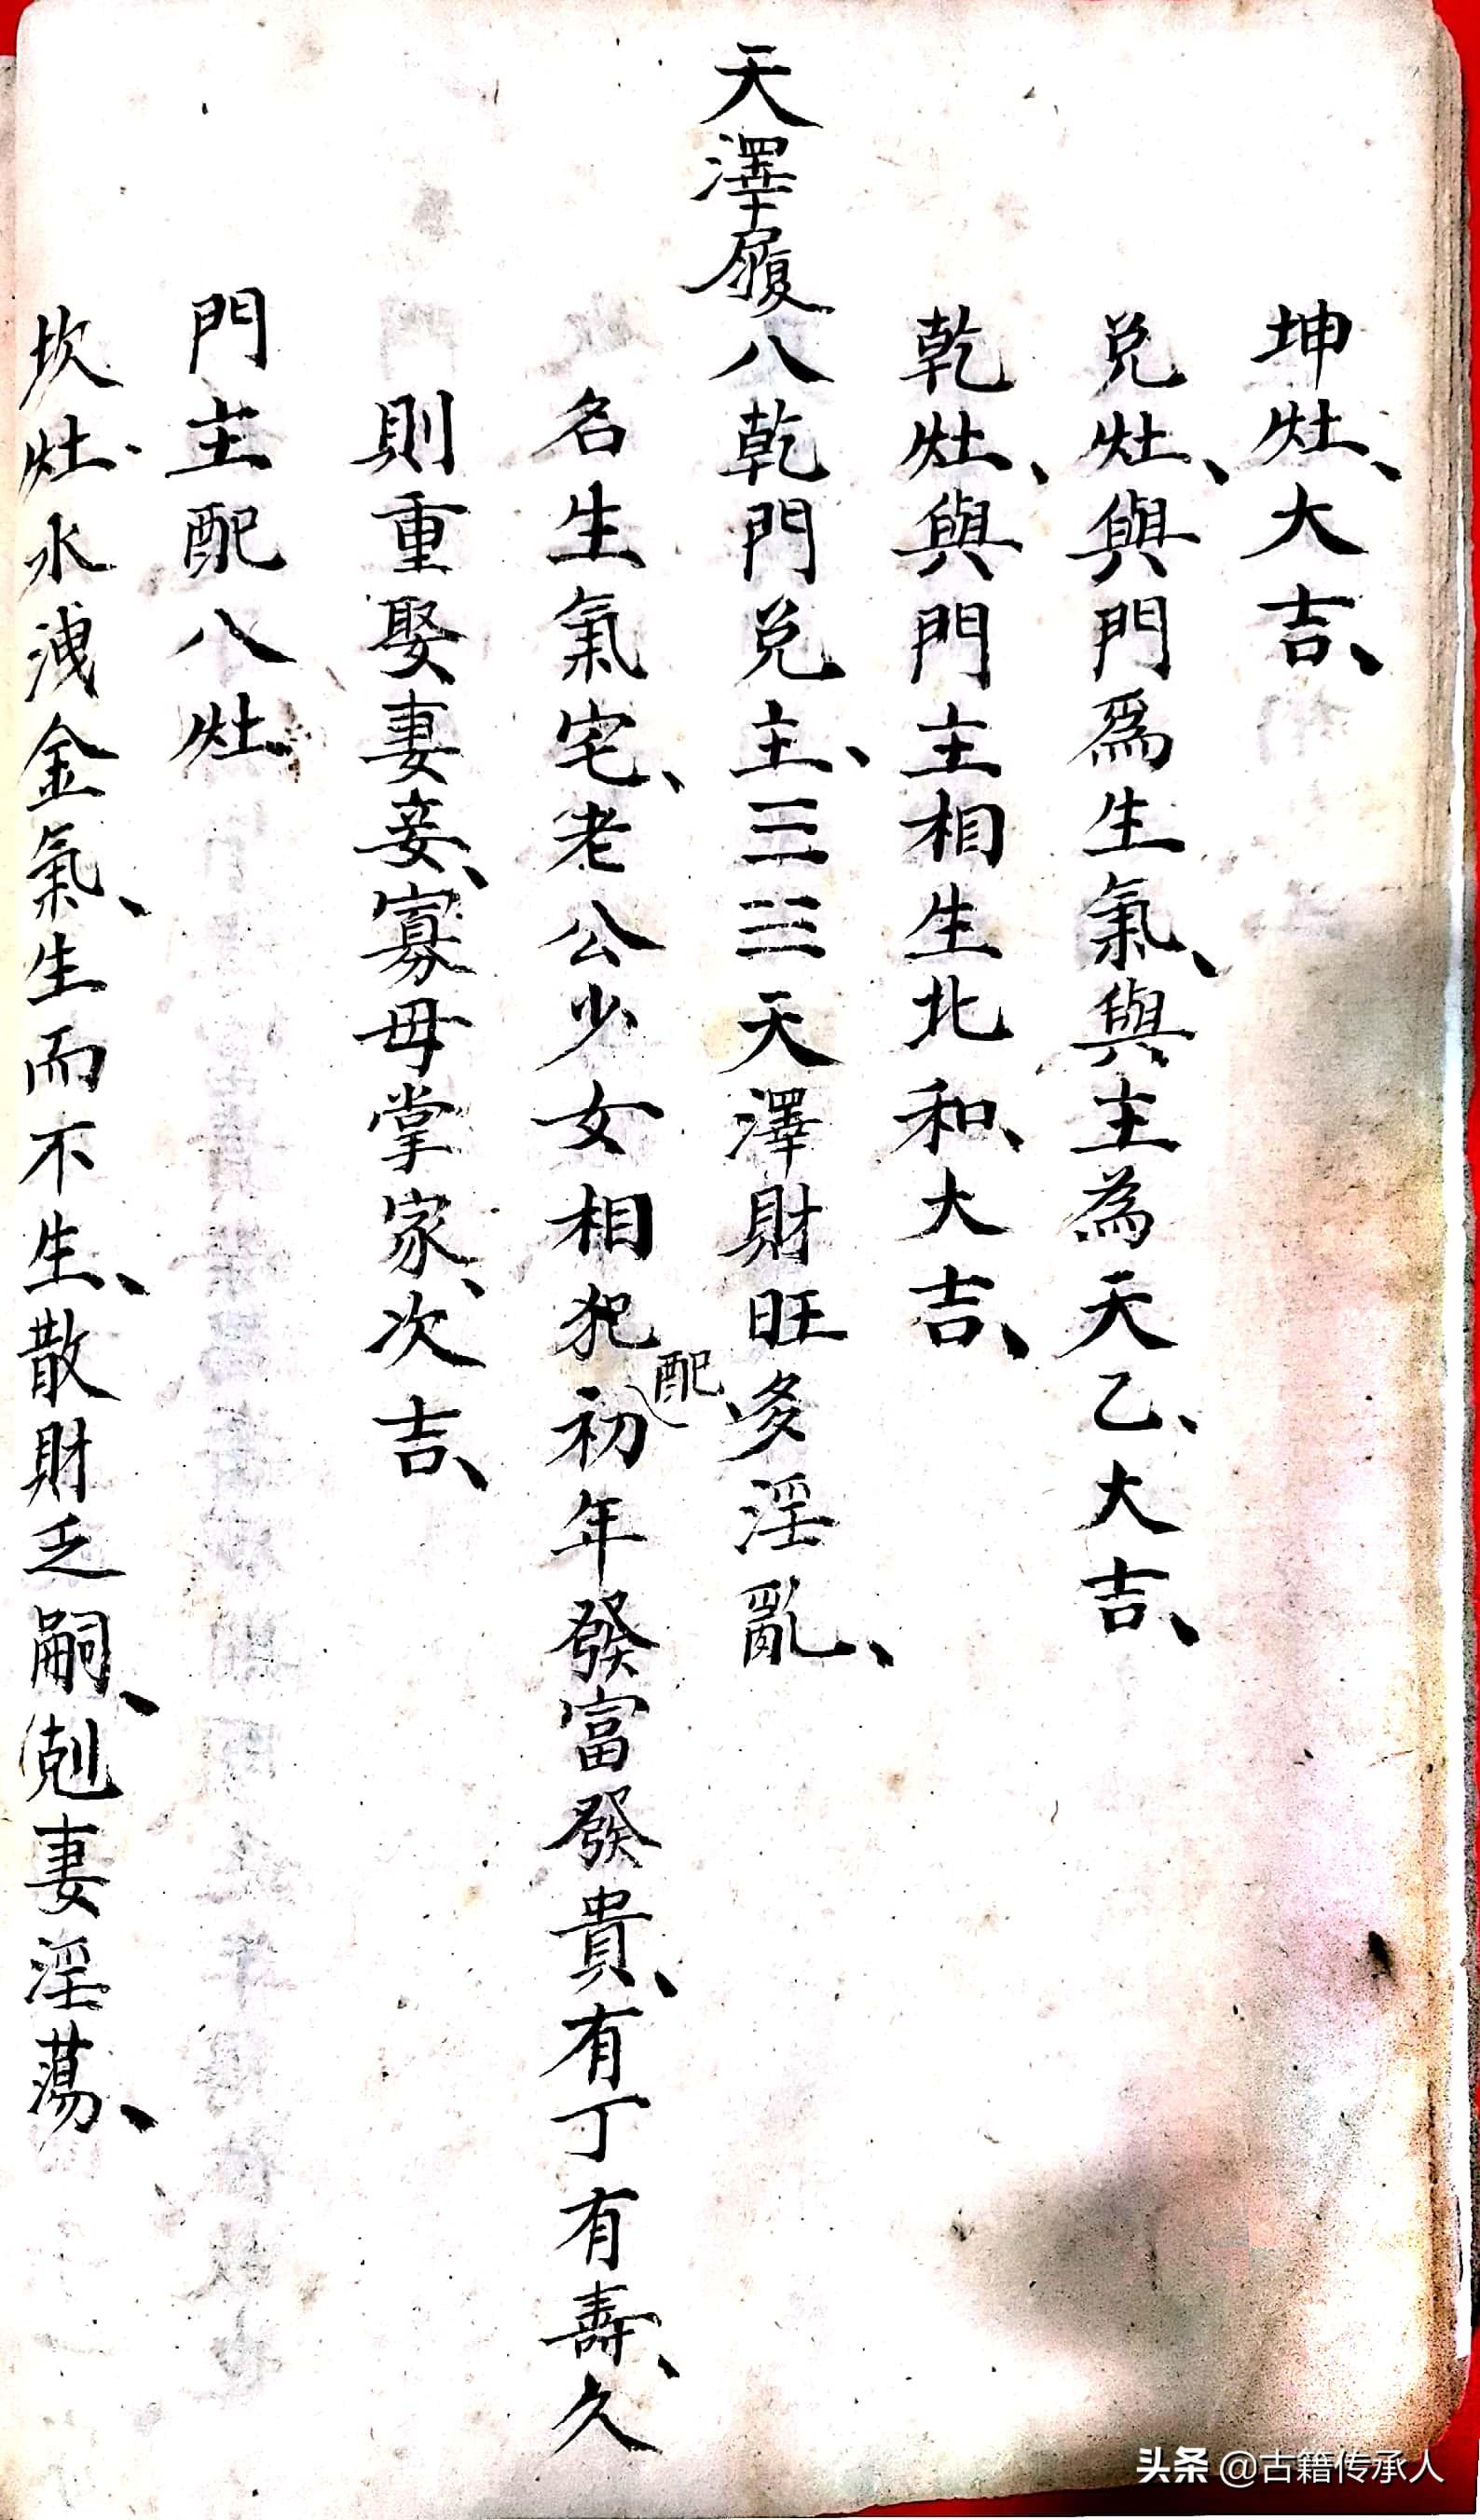 坤灶、大吉、
兑灶、與門爲生氣、與主為天乙、大吉、
乾灶、與門主相生北和、大吉、
天澤履八乾門兑主、☰☱天澤財旺多淫亂、
名生氣宅、老公少女相犯配初年發富發貴、有丁有壽、久
則重娶妻妾、寡母掌家、次吉、
門主配八灶
坎灶、水洩金氣、生而不生、散財乏嗣、剋妻淫蕩、
头条 @古籍传承人